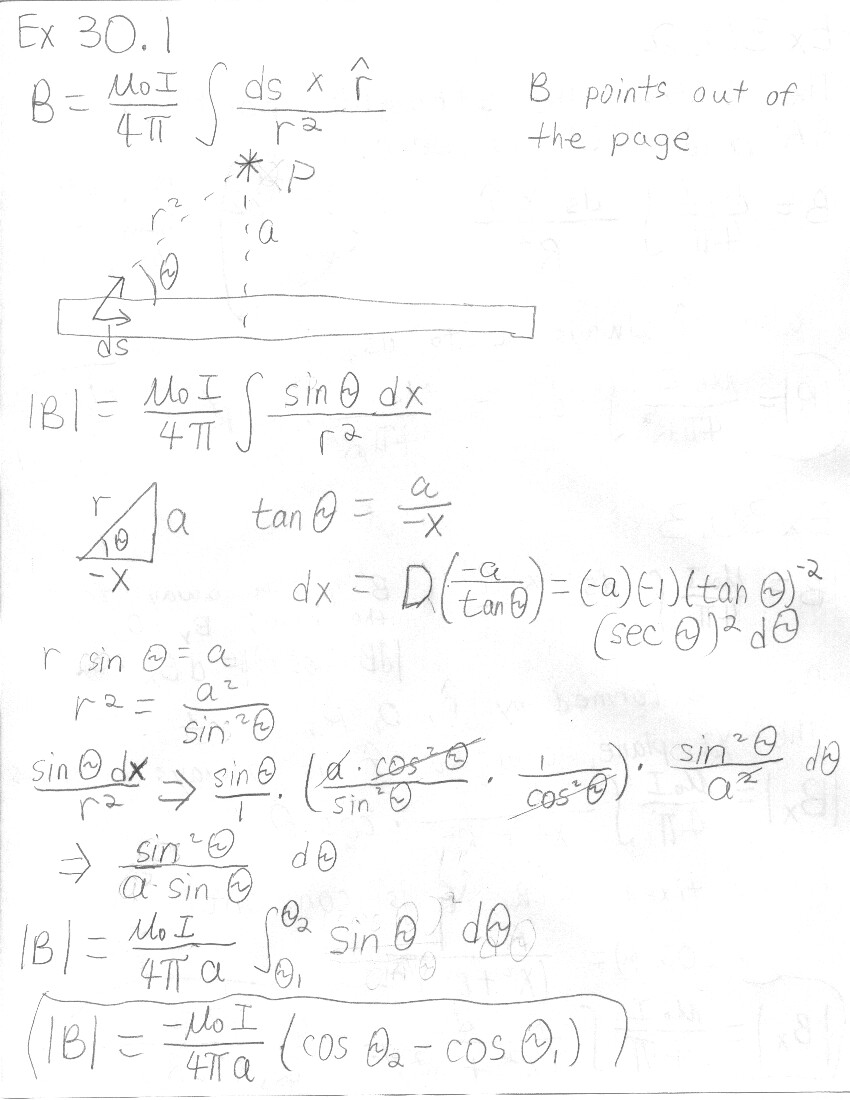 Ex 30.1
B = μ₀I/4π ∫ ds × r̂ / r²
B points out of
the page
* P
r²
a
θ
ds
|B| = μ₀I/4π ∫ sin θ dx / r²
r a θ -x
tan θ = a/-x
dx = D(-a/tan θ) = (-a)(-1)(tan θ)⁻²
(sec θ)² dθ
r sin θ = a
r² = a²/sin²θ
sin θ dx / r² ⇒ sin θ/1 · (a · cos²θ/sin²θ · 1/cos²θ) · sin²θ/a² dθ
⇒ sin²θ / a · sin θ dθ
|B| = μ₀I/4πa ∫θ₁^θ₂ sin θ dθ
|B| = -μ₀I/4πa (cos θ₂ - cos θ₁)